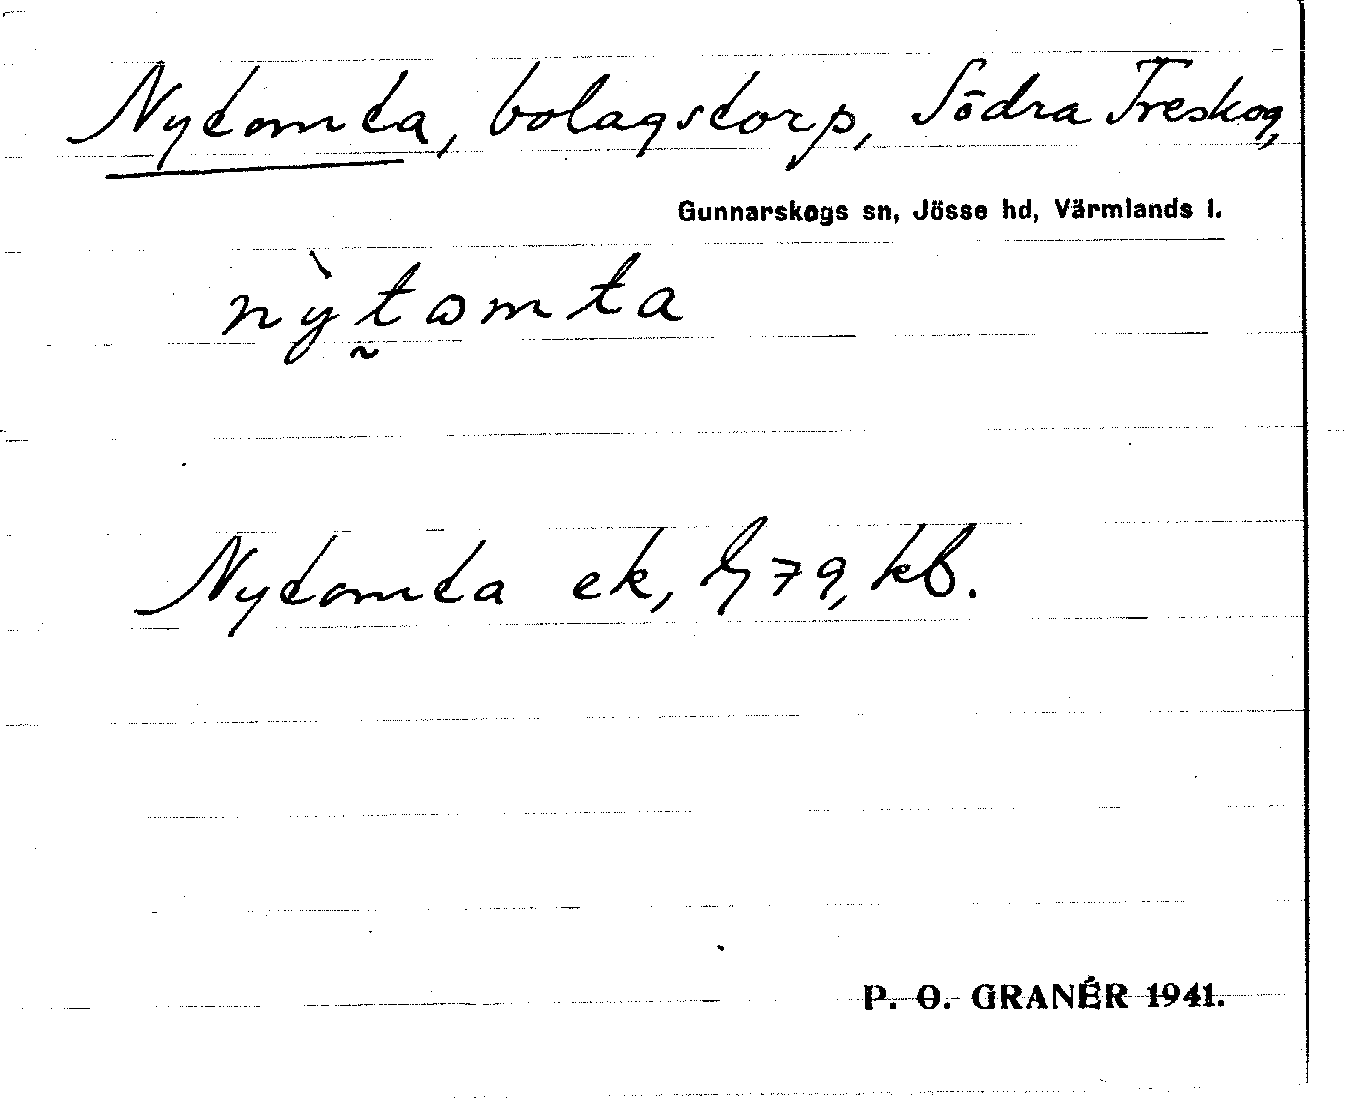 Nytomta, bolagstorp, Södra Treskog,
Gunnarskogs sn, Jösse hd, Värmlands l.
nỳt̰omta
Nytomta ek, G 79, kb.
P. O. GRANÉR 1941.